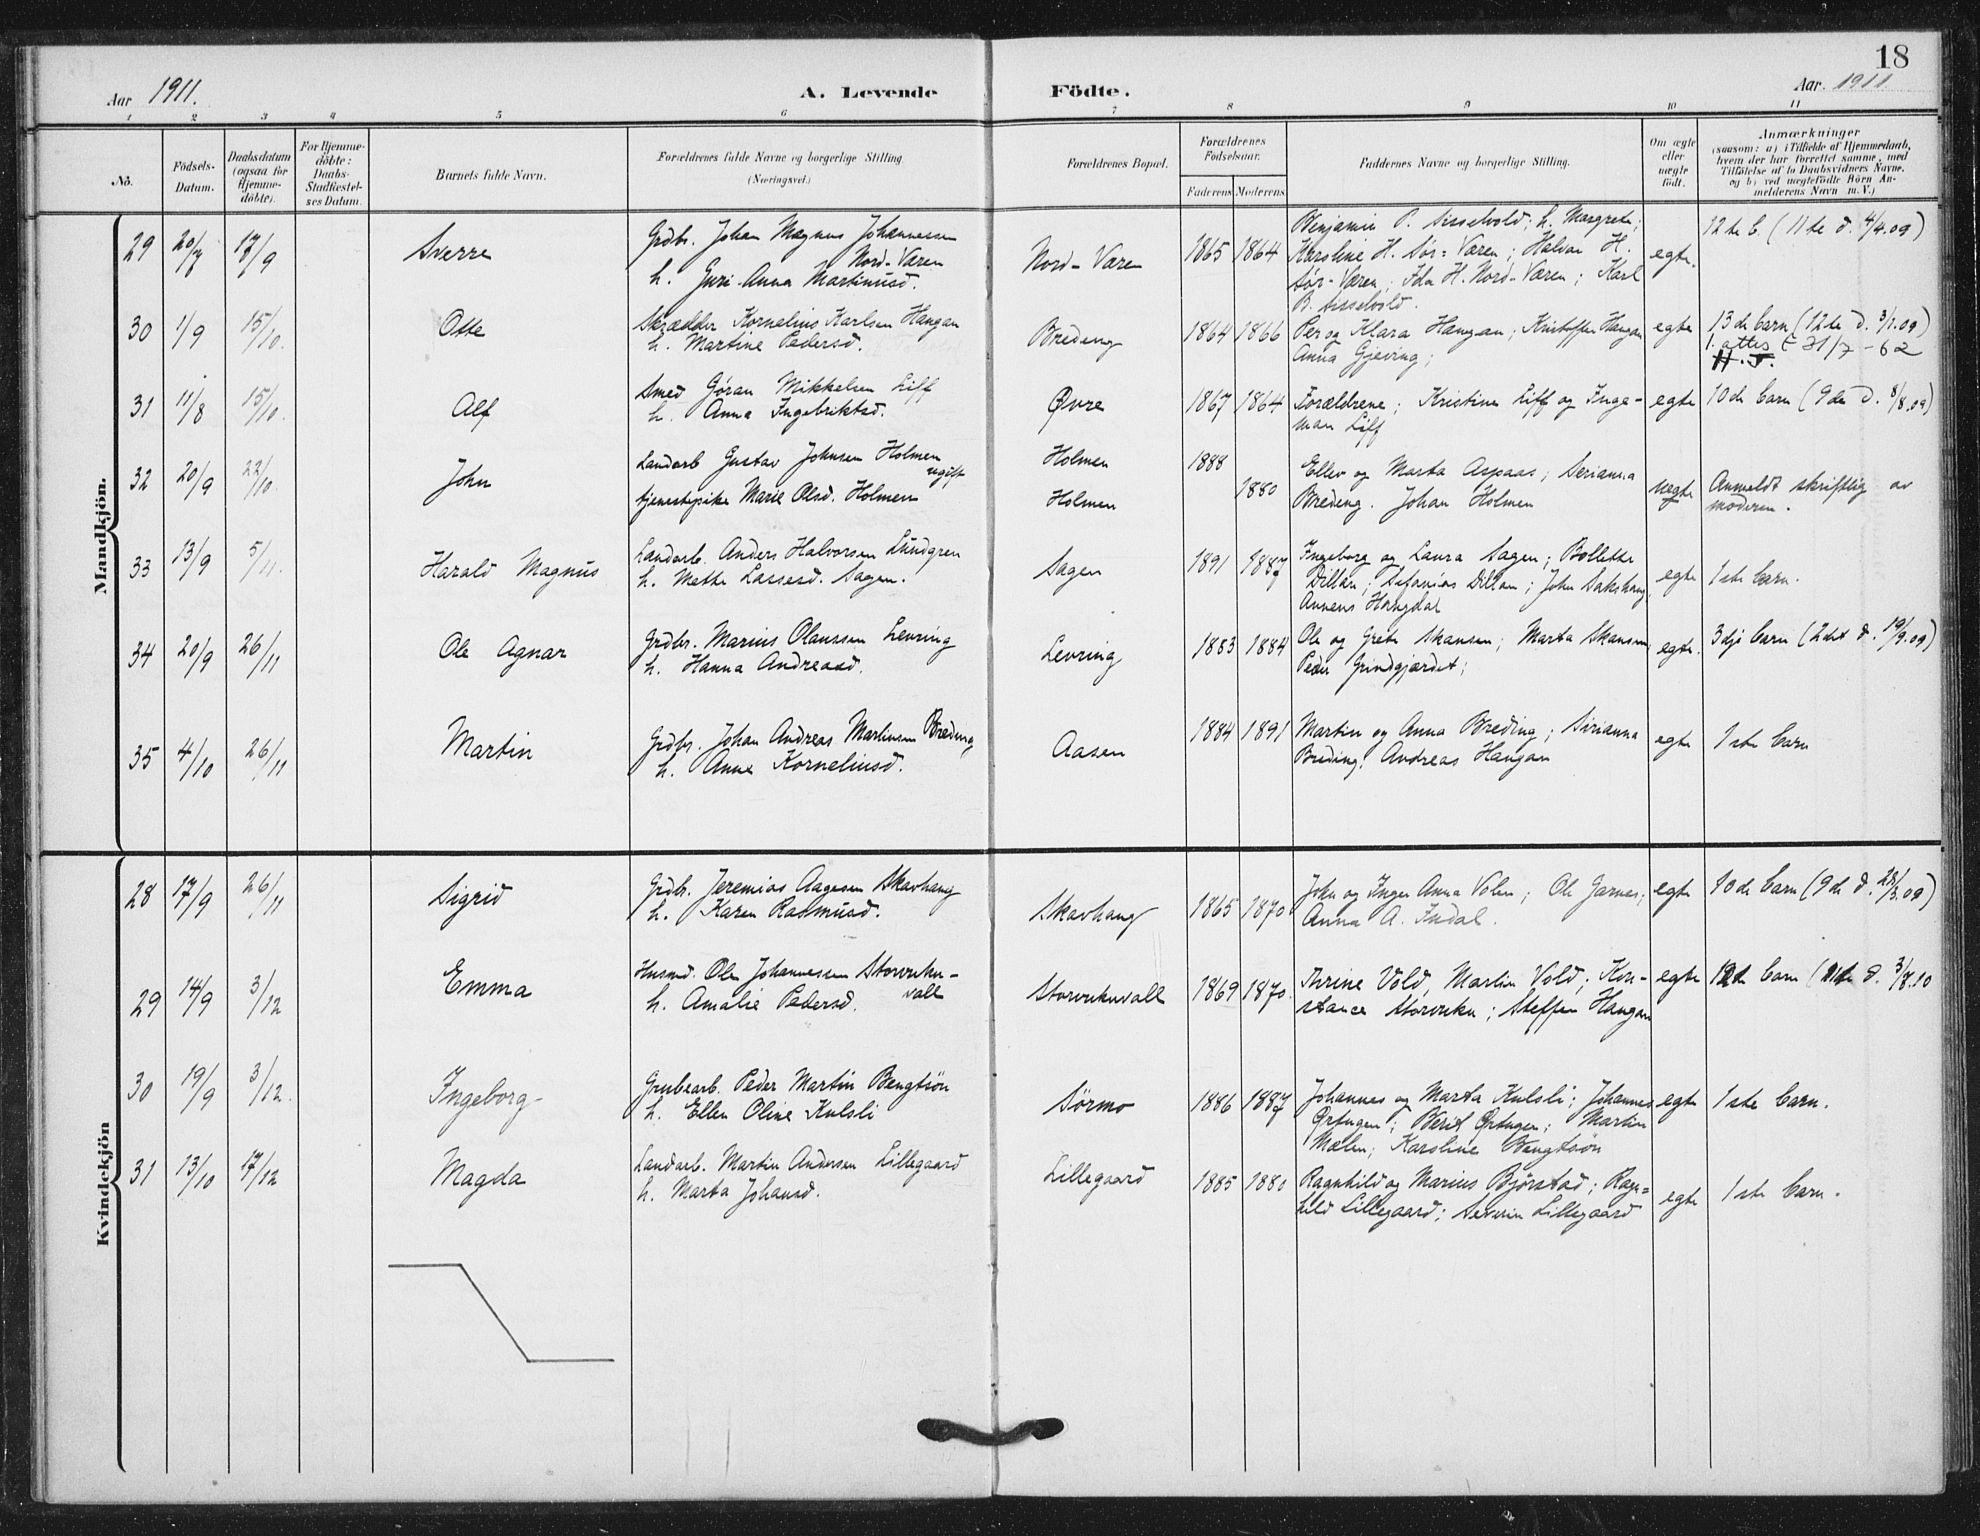 18
Aar 1911.
A. Levende Födte.
Aar. 1911
1 2 3 4 5 6 7 8 9 10 11
No.
Födsels-
Datum.
Daabsdatum
(ogsaa for
Hjemme-
döbte).
For Hjemme-
döbte:
Daabs-
Stadfæstel-
ses Datum.
Barnets fulde Navn.
Forældrenes fulde Navne og borgerlige Stilling
(Næringsvei.)
Forældrenes Bopæl.
Forældrenes
Födselsaar.
Faderens Moderens
Faddernes Navne og borgerlige Stilling.
Om ægte
eller
uægte
födt.
Anmærkninger
(saasom: a) i Tilfælde af Hjemmedaab,
hvem der har forrettet samme, med
Tilföielse af to Daabsvidners Navne.
og b) ved uægtefödte Börn An-
melderens Navn m. V.)
Mandkjön.
29 20/7 17/9 Sverre
Grdbr. Johan Magnus Johannessen
Nord-Væren
h. Guri Anna Martinusd.
Nord-Væren 1865 1864
Benjamin P. Sisselvold; h. Margrete;
Karoline H. Sør-Væren; Halvor H.
Sør-Væren; Ida H. Nord-Væren; Karl
B. Sisselvold.
egte.
12te b. (11te d. 4/4.09)
30 1/9 15/10. Otte
Skrædder Kornelius Karlsen Haugan
h. Martine Pedersd.
Breding 1864 1866
Per og Klara Haugan; Kristoffer Haugan
Anna Gjeving;
egte
13de barn (12te d. 3/1.09)
1. attes t 31/7 - 62
31 11/8 15/10. Alf
Smed Gøran Mikkelsen Liff
h. Anna Ingebriktsd.
Øvre 1867 1864
Forældrene; Kristine Liff og Inge-
man Liff
egte
10de barn (9de d. 8/8.09)
32 20/9 22/10. John
Landarb Gustav Johnsen Holmen
ugift
tjenestepike Marie Olsd. Holmen
Holmen 1888
Holmen 1880
Ellev og Marta Aspaas; Serianna
Breding. Johan Holmen
uegte
Anmeldt skriftlig av
moderen.
33 13/9 5/11. Harald Magnus
Landarb. Anders Halvorsen Lundgren
h. Mette Lassesd. Sagen.
Sagen 1891 1887
Ingeborg og Laura Sagen; Bollette
Dillan; Sefanias Dillan; John Sakshaug
Annæus Haugdal
egte
1ste barn.
34 20/9 26/11 Ole Agnar
Grdbr. Marius Olaussen Levring
h. Hanna Andreasd.
Levring 1883 1884
Ole og Grete Skansen; Marta Skansen;
Peder Grindgjærdet;
egte.
3dje barn (2det d. 19/9.09)
35 4/10 26/11 Martin
Grdbr. Johan Andreas Martinsen Breding
h. Anne Korneliusd.
Aasen 1884 1891
Martin og Anna Breding; Sirianna
Breding; Andreas Haugan
egte
1ste barn
Kvindekjön
28 17/9 26/11 Sigrid
Grdbr. Jeremias Aagesen Skavhaug
h. Karen Rasmusd.
Skavhaug 1865 1870
John og Inger Anna Volen; Ole Garnes;
Anna A. Indal.
egte
10de barn (9de d. 28/3.09)
29 14/9 3/12 Emma
Husmd. Ole Johannessen Storvuku-
vall
h. Amalie Pedersd.
Storvukuvall 1869 1870.
Trine Vold, Martin Vold; Kon-
stance Storvuku; Steffen Haugan
egte
12te barn (11te d. 3/7.10
30 19/9 3/12. Ingeborg
Grubearb. Peder Martin Bengtsön
h. Ellen Oline Kulsli
Sörmo 1886 1887
Johannes og Marta Kulsli; Johannes
Örtugen; Berit Örtugen; Martin
Mælen; Karoline Bengtsön
egte
1ste barn.
31 13/10 17/12 Magda
Landarb. Martin Andersen Lillegaard
h. Marta Johansd.
Lillegaard 1885 1880
Ragnhild og Marius Bjørstad; Ragn-
hild Lillegaard; Severin Lillegaard
egte
1ste barn.